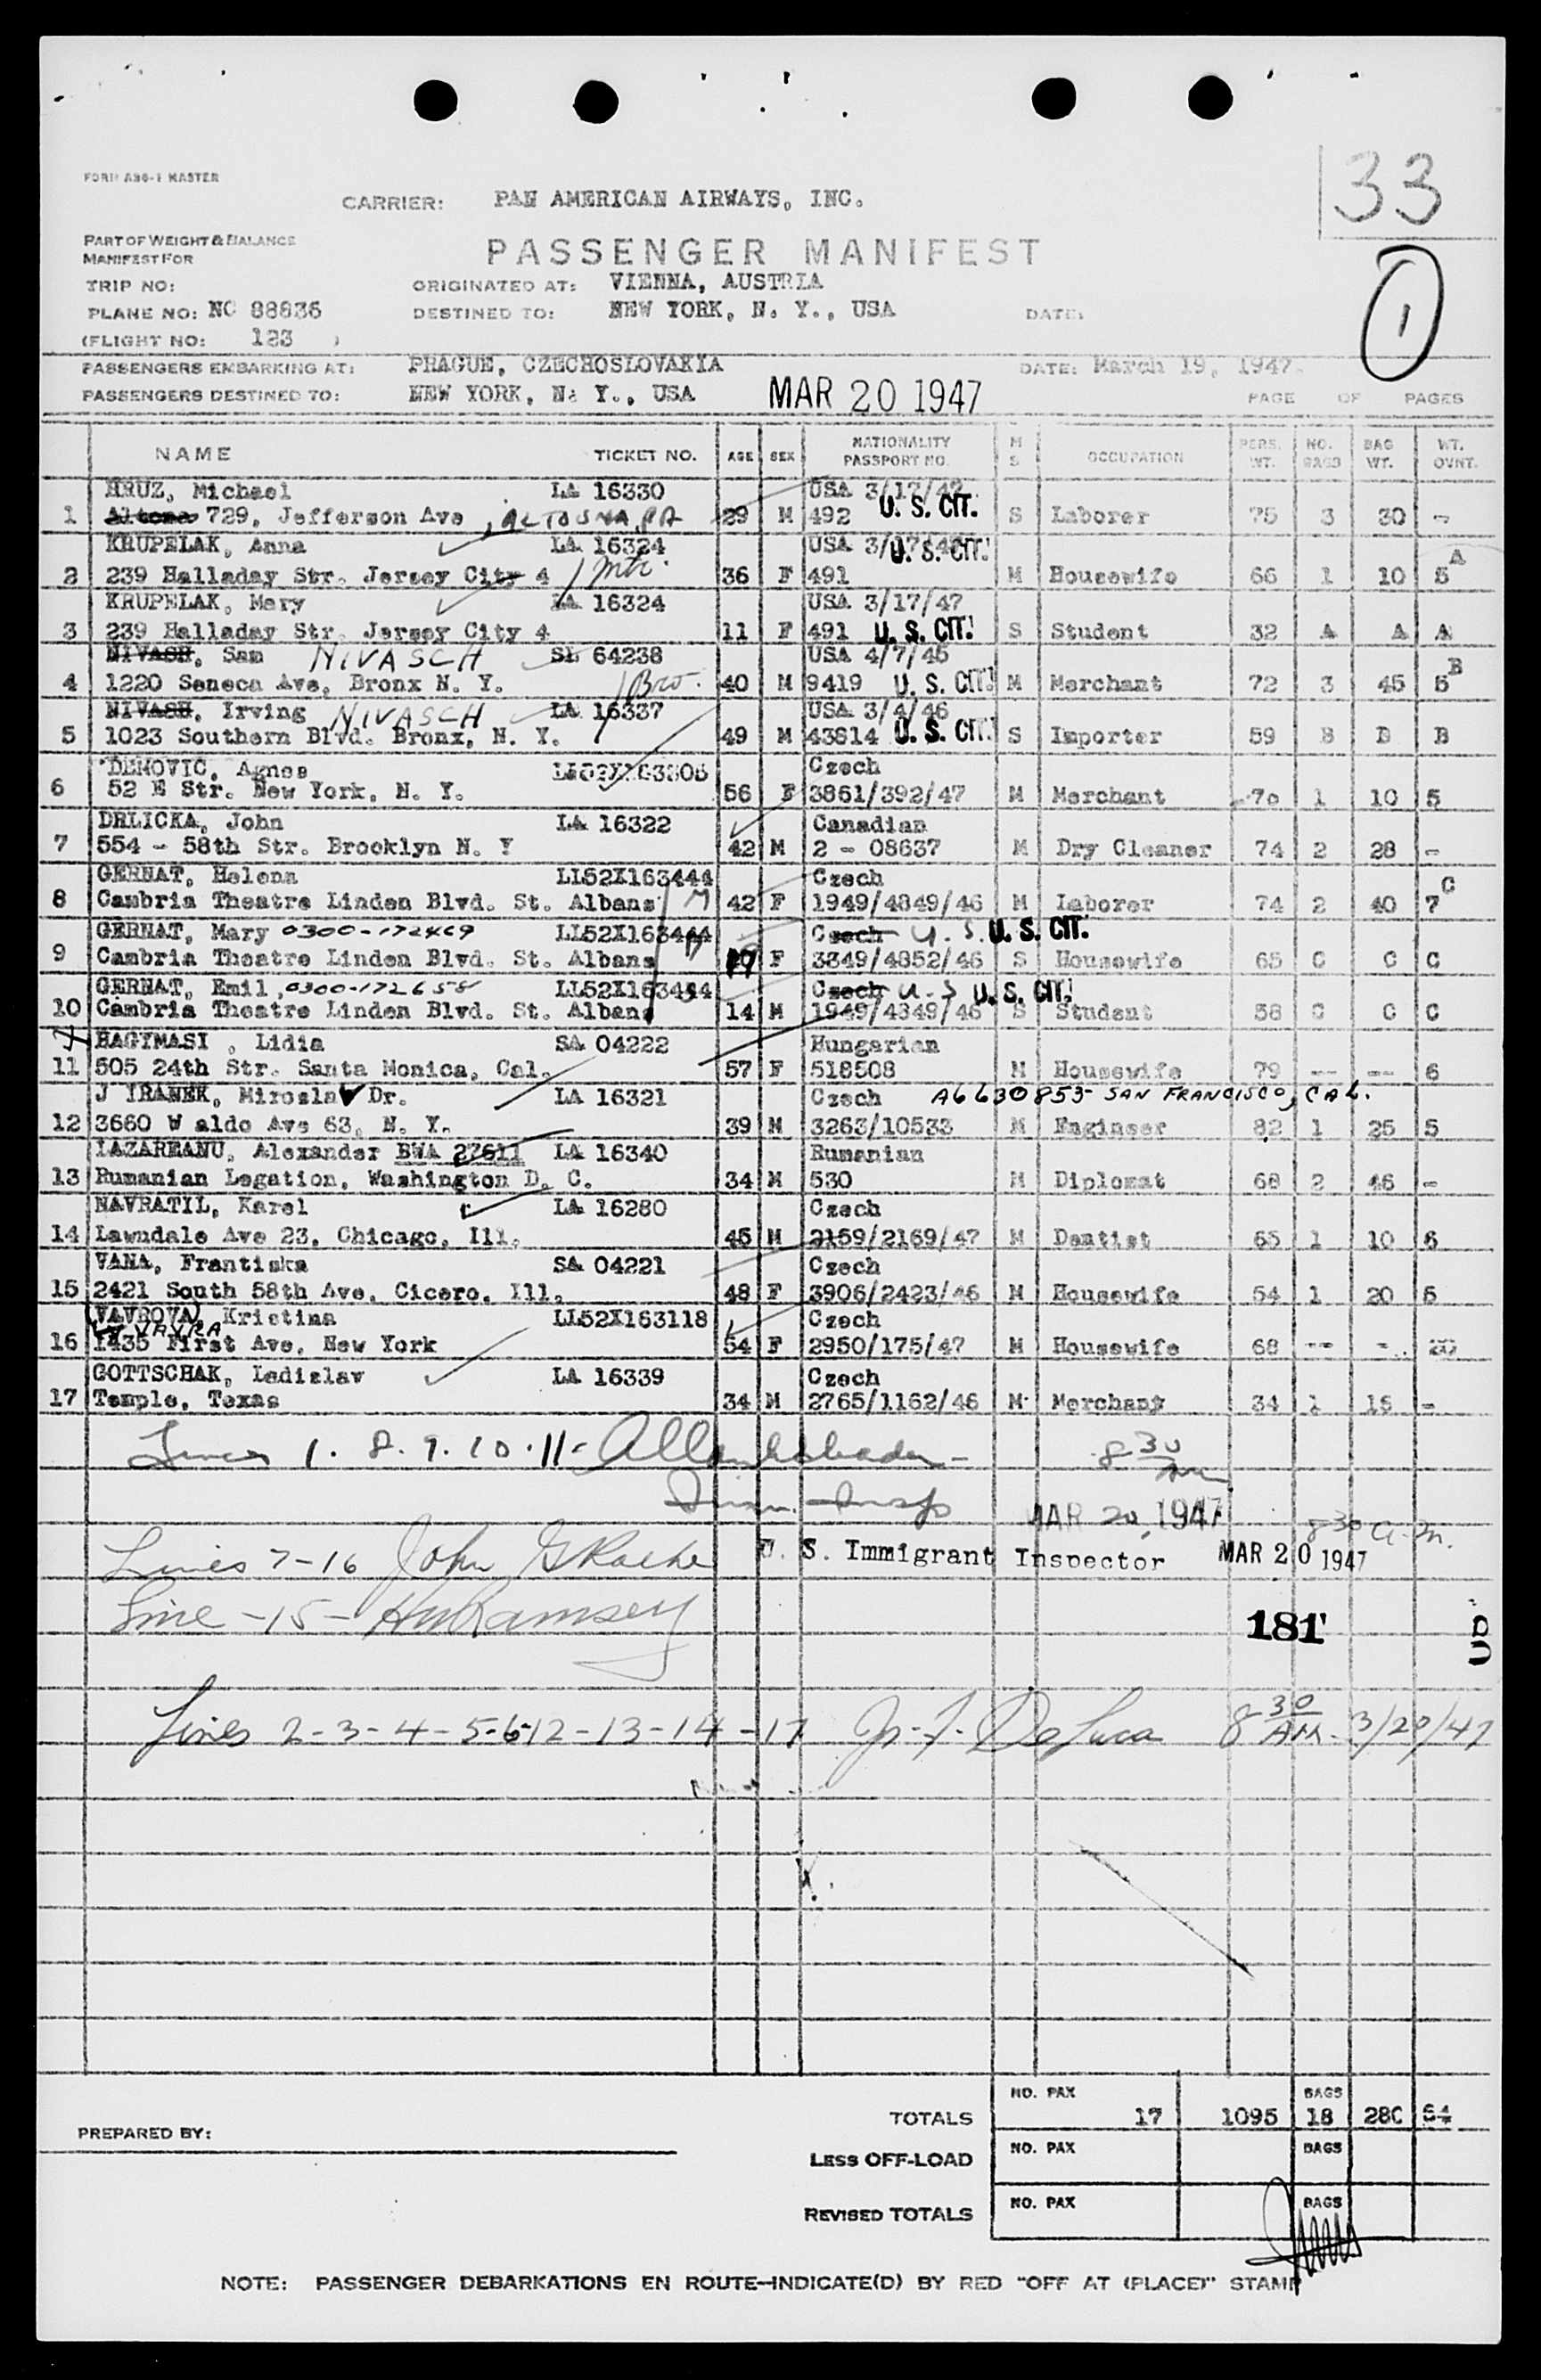 33
FORM A96-1 MASTER
CARRIER: PAN AMERICAN AIRWAYS, INC.
PART OF WEIGHT & BALANCE
MANIFEST FOR
PASSENGER MANIFEST
1
TRIP NO: ORIGINATED AT: VIENNA, AUSTRIA
PLANE NO: NC 88836 DESTINED TO: NEW YORK, N. Y., USA DATE:
(FLIGHT NO: 123 )
PASSENGERS EMBARKING AT: PRAGUE, CZECHOSLOVAKIA DATE: March 19, 1947.
PASSENGERS DESTINED TO: NEW YORK, N. Y., USA MAR 20 1947 PAGE OF PAGES
NAME TICKET NO. AGE SEX NATIONALITY PASSPORT NO. M S OCCUPATION PERS. WT. NO. BAGS BAG WT. WT. OVNT.
HRUZ, Michael LA 16330 USA 3/17/47 U. S. CIT.
1 Altona 729, Jefferson Ave , ALTOONA, PA 29 M 492 S Laborer 75 3 30 -
KRUPELAK, Anna LA 16324 USA 3/17/47 U. S. CIT.
2 239 Halladay Str. Jersey City 4 Mtr. 36 F 491 M Housewife 66 1 10 5 A
KRUPELAK, Mary LA 16324 USA 3/17/47
3 239 Halladay Str. Jersey City 4 11 F 491 U. S. CIT. S Student 32 A A A
NIVASH, Sam NIVASCH SL 64238 USA 4/7/45
4 1220 Seneca Ave, Bronx N. Y. Bro. 40 M 9419 U. S. CIT. M Merchant 72 3 45 5 B
NIVASH, Irving NIVASCH LA 16337 USA 3/4/46
5 1023 Southern Blvd. Bronx, N. Y. 49 M 43814 U. S. CIT. S Importer 59 B B B
DEMOVIC, Agnes Czech
6 52 E Str. New York, N. Y. 56 F 3861/392/47 M Merchant 70 1 10 5
DRLICKA, John LA 16322 Canadian
7 554 - 58th Str. Brooklyn N. Y 42 M 2 - 08637 M Dry Cleaner 74 2 28 -
GERNAT, Helena LL52X163444 Czech
8 Cambria Theatre Linden Blvd. St. Albans M 42 F 1949/4849/46 M Laborer 74 2 40 7 C
GERNAT, Mary 0300-172469 LL52X163444 Czech U. S. U. S. CIT.
9 Cambria Theatre Linden Blvd. St. Albans 19 F 3849/4852/46 S Housewife 65 C C C
GERNAT, Emil, 0300-172658 LL52X163444 Czech U. S U. S. CIT.
10 Cambria Theatre Linden Blvd. St. Albans 14 M 1949/4849/46 S Student 58 C C C
HAGYMASI , Lidia SA 04222 Hungarian
11 505 24th Str. Santa Monica, Cal. 57 F 518508 M Housewife 79 -- -- 6
J IRANEK, Miroslav Dr. LA 16321 Czech A6630853- SAN FRANCISCO, CAL.
12 3660 W aldo Ave 63, N. Y. 39 M 3263/10533 M Engineer 82 1 25 5
LAZAREANU, Alexander BWA 27611 LA 16340 Rumanian
13 Rumanian Legation, Washington D. C. 34 M 530 M Diplomat 68 2 46 -
NAVRATIL, Karel LA 16280 Czech
14 Lawndale Ave 23, Chicago, Ill. 45 M 2159/2169/47 M Dentist 65 1 10 6
VANA, Frantiska SA 04221 Czech
15 2421 South 58th Ave, Cicero, Ill. 48 F 3906/2423/46 M Housewife 54 1 20 5
(VAVROVA) Kristina LL52X163118 Czech
VAVRA
16 1435 First Ave, New York 54 F 2950/175/47 M Housewife 68 -- -
GOTTSCHAK, Ladislav LA 16339 Czech
17 Temple, Texas 34 M 2765/1162/46 M Merchant 34 1 16 -
Lines 1. 8. 9. 10. 11- 8 30 am
Imm. Insp MAR 20, 1947
Lines 7-16 John G Roche U. S. Immigrant Inspector MAR 20 1947 8 30 a.m.
Line -15- Ramsey 181
Lines 2-3-4-5-6-12-13-14-17 DeLuca 8 30 AM. 3/20/47
TOTALS NO. PAX 17 1095 BAGS 18 280 64
PREPARED BY:
LESS OFF-LOAD NO. PAX BAGS
REVISED TOTALS NO. PAX BAGS
NOTE: PASSENGER DEBARKATIONS EN ROUTE—INDICATE(D) BY RED "OFF AT (PLACE)" STAMP